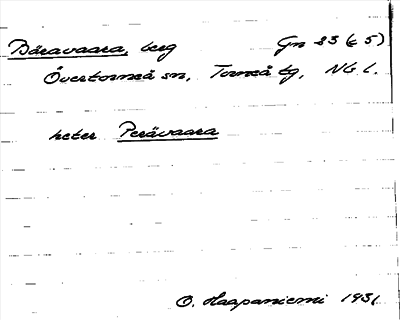 Bäravaara, berg Gn 23 (E 5)
Övertorneå sn, Torneå tg, NB. l.
heter Perävaara
O. Haapaniemi 1931